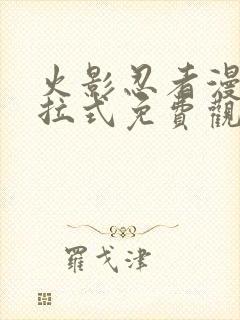 火影忍者漫
拉式免費觀
羅戈津